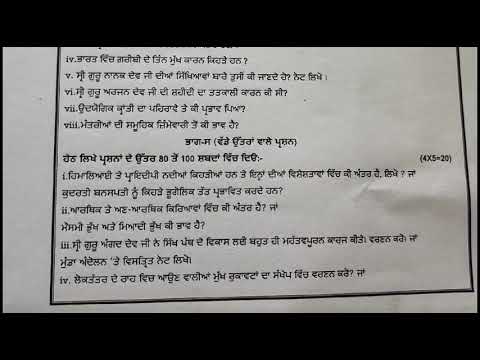 iv.ਭਾਰਤ ਵਿੱਚ ਗਰੀਬੀ ਦੇ ਤਿੰਨ ਮੁੱਖ ਕਾਰਨ ਕਿਹੜੇ ਹਨ ?
v. ਸ੍ਰੀ ਗੁਰੂ ਨਾਨਕ ਦੇਵ ਜੀ ਦੀਆਂ ਸਿੱਖਿਆਵਾਂ ਬਾਰੇ ਤੁਸੀਂ ਕੀ ਜਾਣਦੇ ਹੋ? ਨੋਟ ਲਿਖੋ ।
vi.ਸ੍ਰੀ ਗੁਰੂ ਅਰਜਨ ਦੇਵ ਜੀ ਦੀ ਸ਼ਹੀਦੀ ਦਾ ਤਤਕਾਲੀ ਕਾਰਨ ਕੀ ਸੀ?
vii.ਉਦਯੋਗਿਕ ਕ੍ਰਾਂਤੀ ਦਾ ਪਹਿਰਾਵੇ ਤੇ ਕੀ ਪ੍ਰਭਾਵ ਪਿਆ?
viii.ਮੰਤਰੀਆਂ ਦੀ ਸਮੂਹਿਕ ਜ਼ਿੰਮੇਵਾਰੀ ਤੋਂ ਕੀ ਭਾਵ ਹੈ?
ਭਾਗ-ਸ (ਵੱਡੇ ਉੱਤਰਾਂ ਵਾਲੇ ਪ੍ਰਸ਼ਨ)
ਹੇਠ ਲਿਖੇ ਪ੍ਰਸ਼ਨਾਂ ਦੇ ਉੱਤਰ 80 ਤੋਂ 100 ਸ਼ਬਦਾਂ ਵਿੱਚ ਦਿਓ:- (4X5=20)
i.ਹਿਮਾਲਿਆਈ ਤੇ ਪ੍ਰਾਇਦੀਪੀ ਨਦੀਆਂ ਕਿਹੜੀਆਂ ਹਨ ਤੇ ਇਨ੍ਹਾਂ ਦੀਆਂ ਵਿਸ਼ੇਸ਼ਤਾਵਾਂ ਵਿੱਚ ਕੀ ਅੰਤਰ ਹੈ, ਲਿਖੋ ? ਜਾਂ
ਕੁਦਰਤੀ ਬਨਸਪਤੀ ਨੂੰ ਕਿਹੜੇ ਭੂਗੋਲਿਕ ਤੱਤ ਪ੍ਰਭਾਵਿਤ ਕਰਦੇ ਹਨ?
ii.ਆਰਥਿਕ ਤੇ ਅਣ-ਆਰਥਿਕ ਕਿਰਿਆਵਾਂ ਵਿੱਚ ਕੀ ਅੰਤਰ ਹੈ? ਜਾਂ
ਮੌਸਮੀ ਭੁੱਖ ਅਤੇ ਮਿਆਦੀ ਭੁੱਖ ਕੀ ਭਾਵ ਹੈ?
iii.ਸ੍ਰੀ ਗੁਰੂ ਅੰਗਦ ਦੇਵ ਜੀ ਨੇ ਸਿੱਖ ਪੰਥ ਦੇ ਵਿਕਾਸ ਲਈ ਬਹੁਤ ਹੀ ਮਹੱਤਵਪੂਰਨ ਕਾਰਜ ਕੀਤੇ। ਵਰਣਨ ਕਰੋ। ਜਾਂ
ਮੁੰਡਾ ਅੰਦੋਲਨ 'ਤੇ ਵਿਸਤ੍ਰਿਤ ਨੋਟ ਲਿਖੋ।
iv. ਲੋਕਤੰਤਰ ਦੇ ਰਾਹ ਵਿਚ ਆਉਣ ਵਾਲੀਆਂ ਮੁੱਖ ਰੁਕਾਵਟਾਂ ਦਾ ਸੰਖੇਪ ਵਿੱਚ ਵਰਣਨ ਕਰੋ? ਜਾਂ